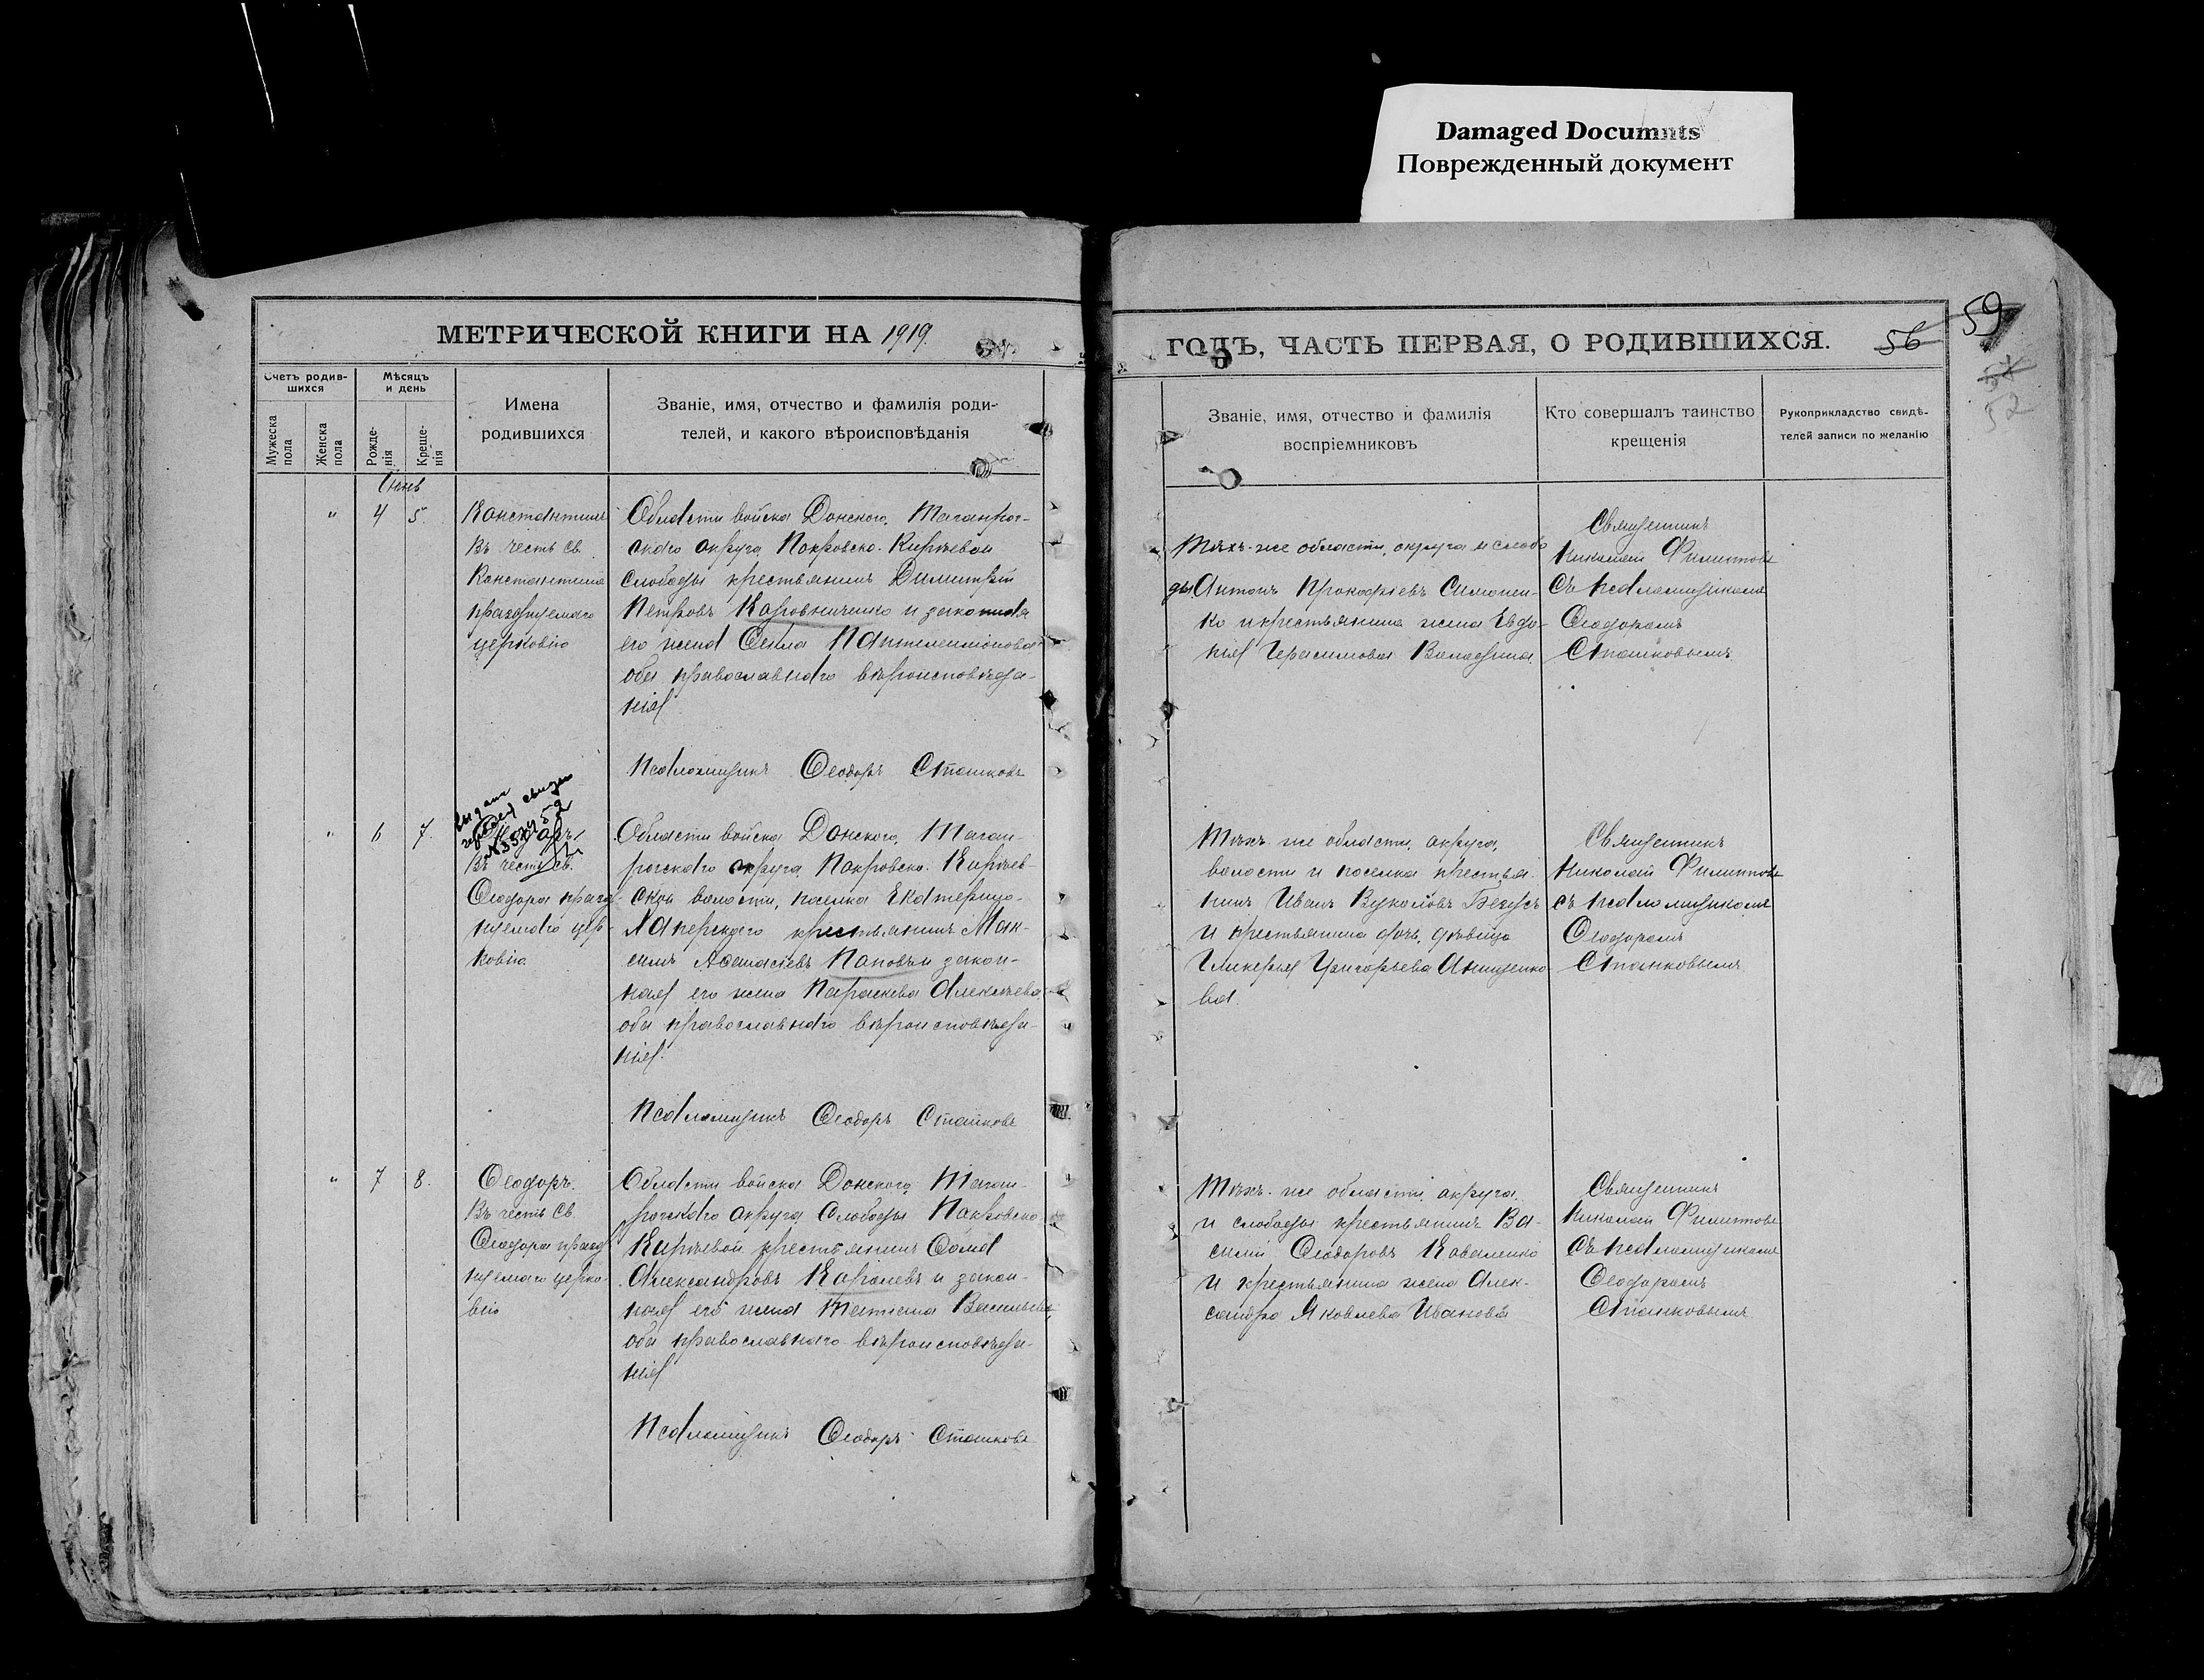 Damaged Documnts
Поврежденный документ
МЕТРИЧЕСКОЙ КНИГИ НА 1919.
ГОДЪ, ЧАСТЬ ПЕРВАЯ, О РОДИВШИХСЯ.
56
59
52
Счетъ родив-
шихся
Мужеска
пола
Женска
пола
Мѣсяцъ
и день
Рожде-
нія
Креще-
нія
Имена
родившихся
Званіе, имя, отчество и фамилія роди-
телей, и какого вѣроисповѣданія
Званіе, имя, отчество и фамилія
воспріемниковъ
Кто совершалъ таинство
крещенія
Рукоприкладство свидѣ-
телей записи по желанію
" 4 5.
Константинъ
Въ честь св.
Константина
празднуемаго
церковію
Области войска Донского, Таганрог-
скаго округа, Покровско-Кирѣевой
слободы крестьянинъ Димитрій
Петровъ и законная
его жена Пантелеимонова
оба православнаго вѣроисповѣда-
нія
Псаломщикъ Ѳеодоръ Сташковъ
Тѣхъ-же области, округа и слобо
ды Антонъ Прокофіевъ Симонен-
ко и крестьянина жена Евдо-
кія Герасимова
Священникъ
Николай Филипповъ
Съ псаломщикомъ
Ѳеодоромъ
Сташковымъ
" 6 7.
Въ честь св.
Ѳеодора празд
нуемаго цер-
ковію
Области войска Донского, Таган-
рогскаго округа, Покровско-Кирѣев
ской волости, поселка Екатерино-
Хаперскаго крестьянинъ Мак-
симъ Аѳанасіевъ Поповъ и закон-
ная его жена Параскева Алексѣева
оба православнаго вѣроисповѣда-
нія.
Псаломщикъ Ѳеодоръ Сташковъ
Тѣхъ-же области, округа,
волости и поселка крестья-
нинъ Иванъ Вуколовъ
и крестьянина дочь, дѣвица
Гликерія Григорьева Анищенко
ва.
Священникъ
Николай Филипповъ
съ псаломщикомъ
Ѳеодоромъ
Сташковымъ
" 7 8.
Ѳеодоръ.
Въ честь св
Ѳеодора празд
нуемаго церко-
вію
Области войска Донского, Таган-
рогскаго округа, Слободы Покровско-
Кирѣевой крестьянинъ Ѳома
Александровъ Королевъ и закон-
ная его жена Татіана Васильева,
оба православнаго вѣроисповѣда-
нія
Псаломщикъ Ѳеодоръ Сташковъ
Тѣхъ-же области, округа
и слободы крестьянинъ Ва-
силій Ѳеодоровъ Коваленко
и крестьянина жена Алек-
сандра Яковлева Иванова
Священникъ
Николай Филипповъ
Съ псаломщикомъ
Ѳеодоромъ
Сташковымъ